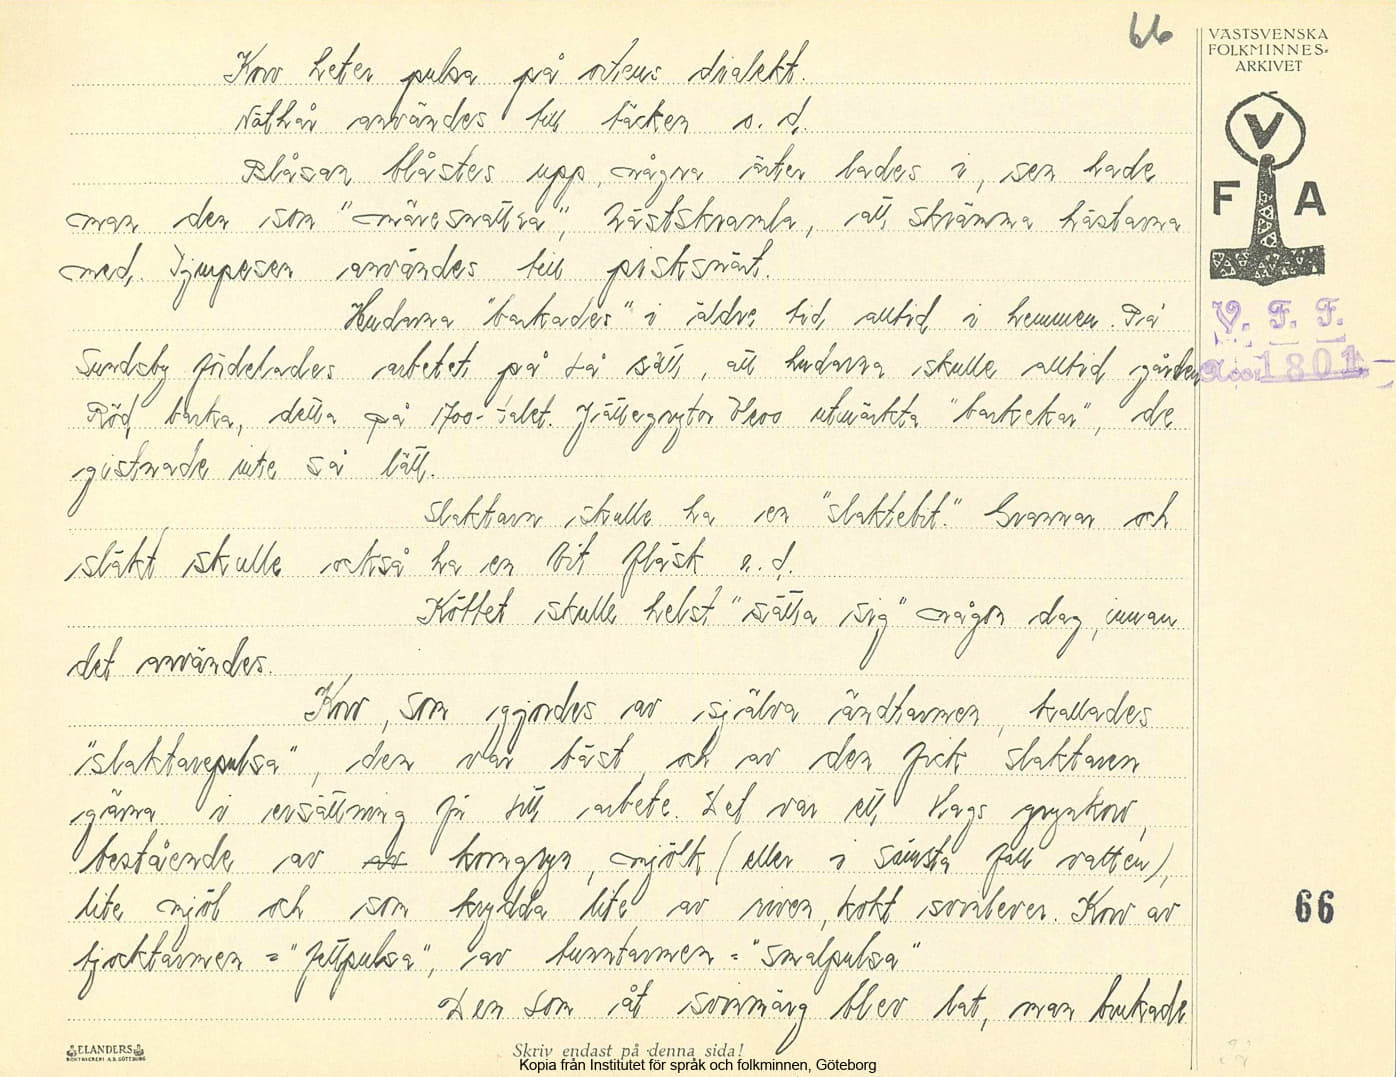 66
VÄSTSVENSKA
FOLKMINNES-
ARKIVET
V
F A
V. F. F.
Acc. 1801
Korv heter pulsa på ortens dialekt.
Nöthår användes till täcken o. d.
Blåsan blåstes upp, några ärter lades i, sen hade
man den som "märesnattra", hästskramla, att skrämma hästarna
med. användes till pisksnärt.
Hudarna "barkades" i äldre tid alltid i hemmen. På
Sundsby fördelades arbetet på så sätt, att hudarna skulle alltid gården
Röd barka, detta på 1700-talet. Jättegrytor blevo utmärkta "barkekar", de
gistnade inte så lätt.
Slaktarn skulle ha en "slaktebit." Grannar och
släkt skulle också ha en bit fläsk o. d.
Köttet skulle helst "sätta sig" någon dag, innan
det användes.
Korv, som gjordes av själva ändtarmen, kallades
"slaktarepulsa", den var bäst, och av den fick slaktaren
gärna i ersättning för sitt arbete. Det var ett slags grynkorv,
bestående av av korngryn, mjölk (eller i sämsta fall vatten),
lite mjöl och som krydda lite av riven, kokt svinlever. Korv av
tjocktarmen = "fettpulsa", av tunntarmen = "smalpulsa"
Den som åt svinmärg blev lat, man brukade
66
ELANDERS
BOKTRYCKERI A.B. GÖTEBORG
Skriv endast på denna sida!
Kopia från Institutet för språk och folkminnen, Göteborg